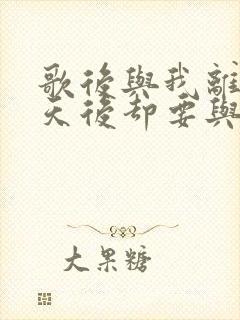 歌後與我離
天後却要與
大果糖